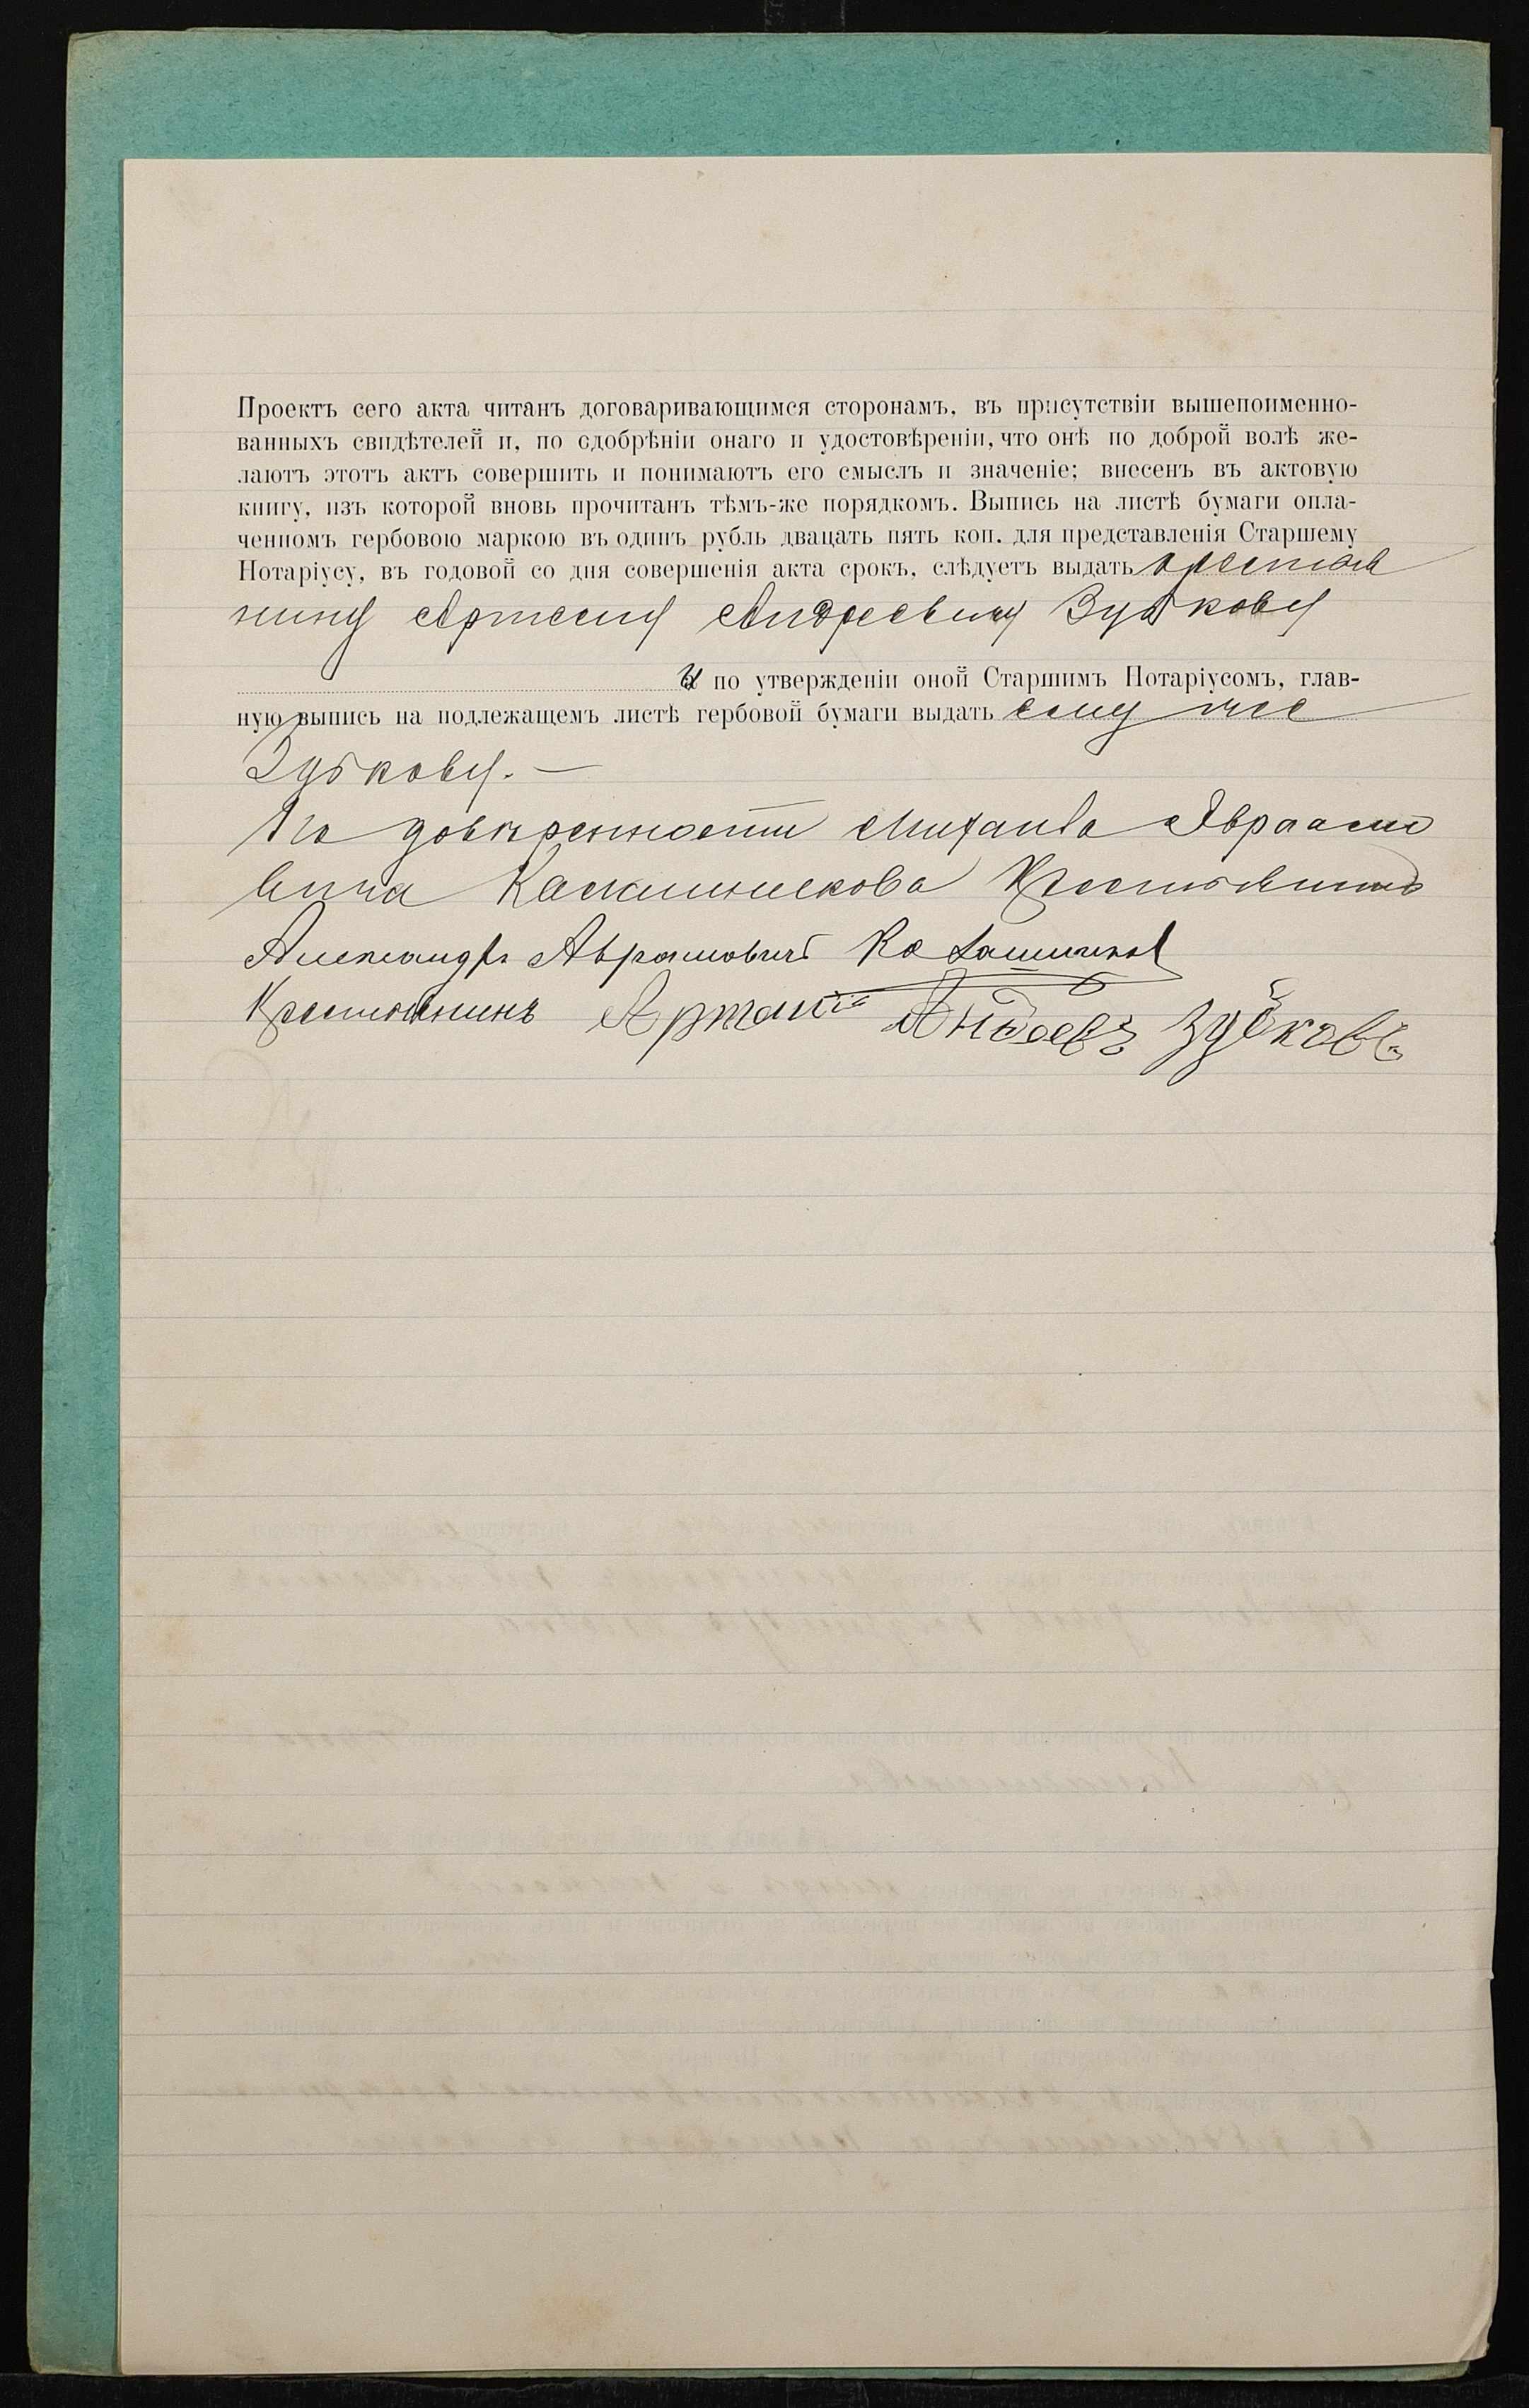 Проектъ сего акта читанъ договаривающимся сторонамъ, въ присутствіи вышепоименно-
ванныхъ свидѣтелей и, по сдобрѣніи онаго и удостовѣреніи, что онѣ по доброй волѣ же-
лаютъ этотъ актъ совершить и понимаютъ его смыслъ и значеніе; внесенъ въ актовую
книгу, изъ которой вновь прочитанъ тѣмъ-же порядкомъ. Выпись на листѣ бумаги опла-
ченномъ гербовою маркою въ одинъ рубль двацать пять коп. для представленія Старшему
Нотаріусу, въ годовой со дня совершенія акта срокъ, слѣдуетъ выдать крестья
нину Андреевичу Зубкову
и по утвержденіи оной Старшимъ Нотаріусомъ, глав-
ную выпись на подлежащемъ листѣ гербовой бумаги выдать ему же
Зубкову. —
По довѣренности Михаила Авраамо
вича Крестьянинъ
Александръ Аврамовичъ
Крестьянинъ Зубковъ